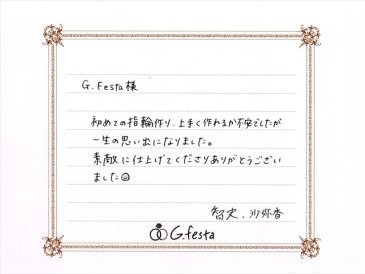 G.Festa様
初めての指輪作り、上まく作れるか不安でしたが
一生の思い出になりました。
素敵に仕上げてくださりありがとうござい
ました☺
智史.沙弥香
G.festa